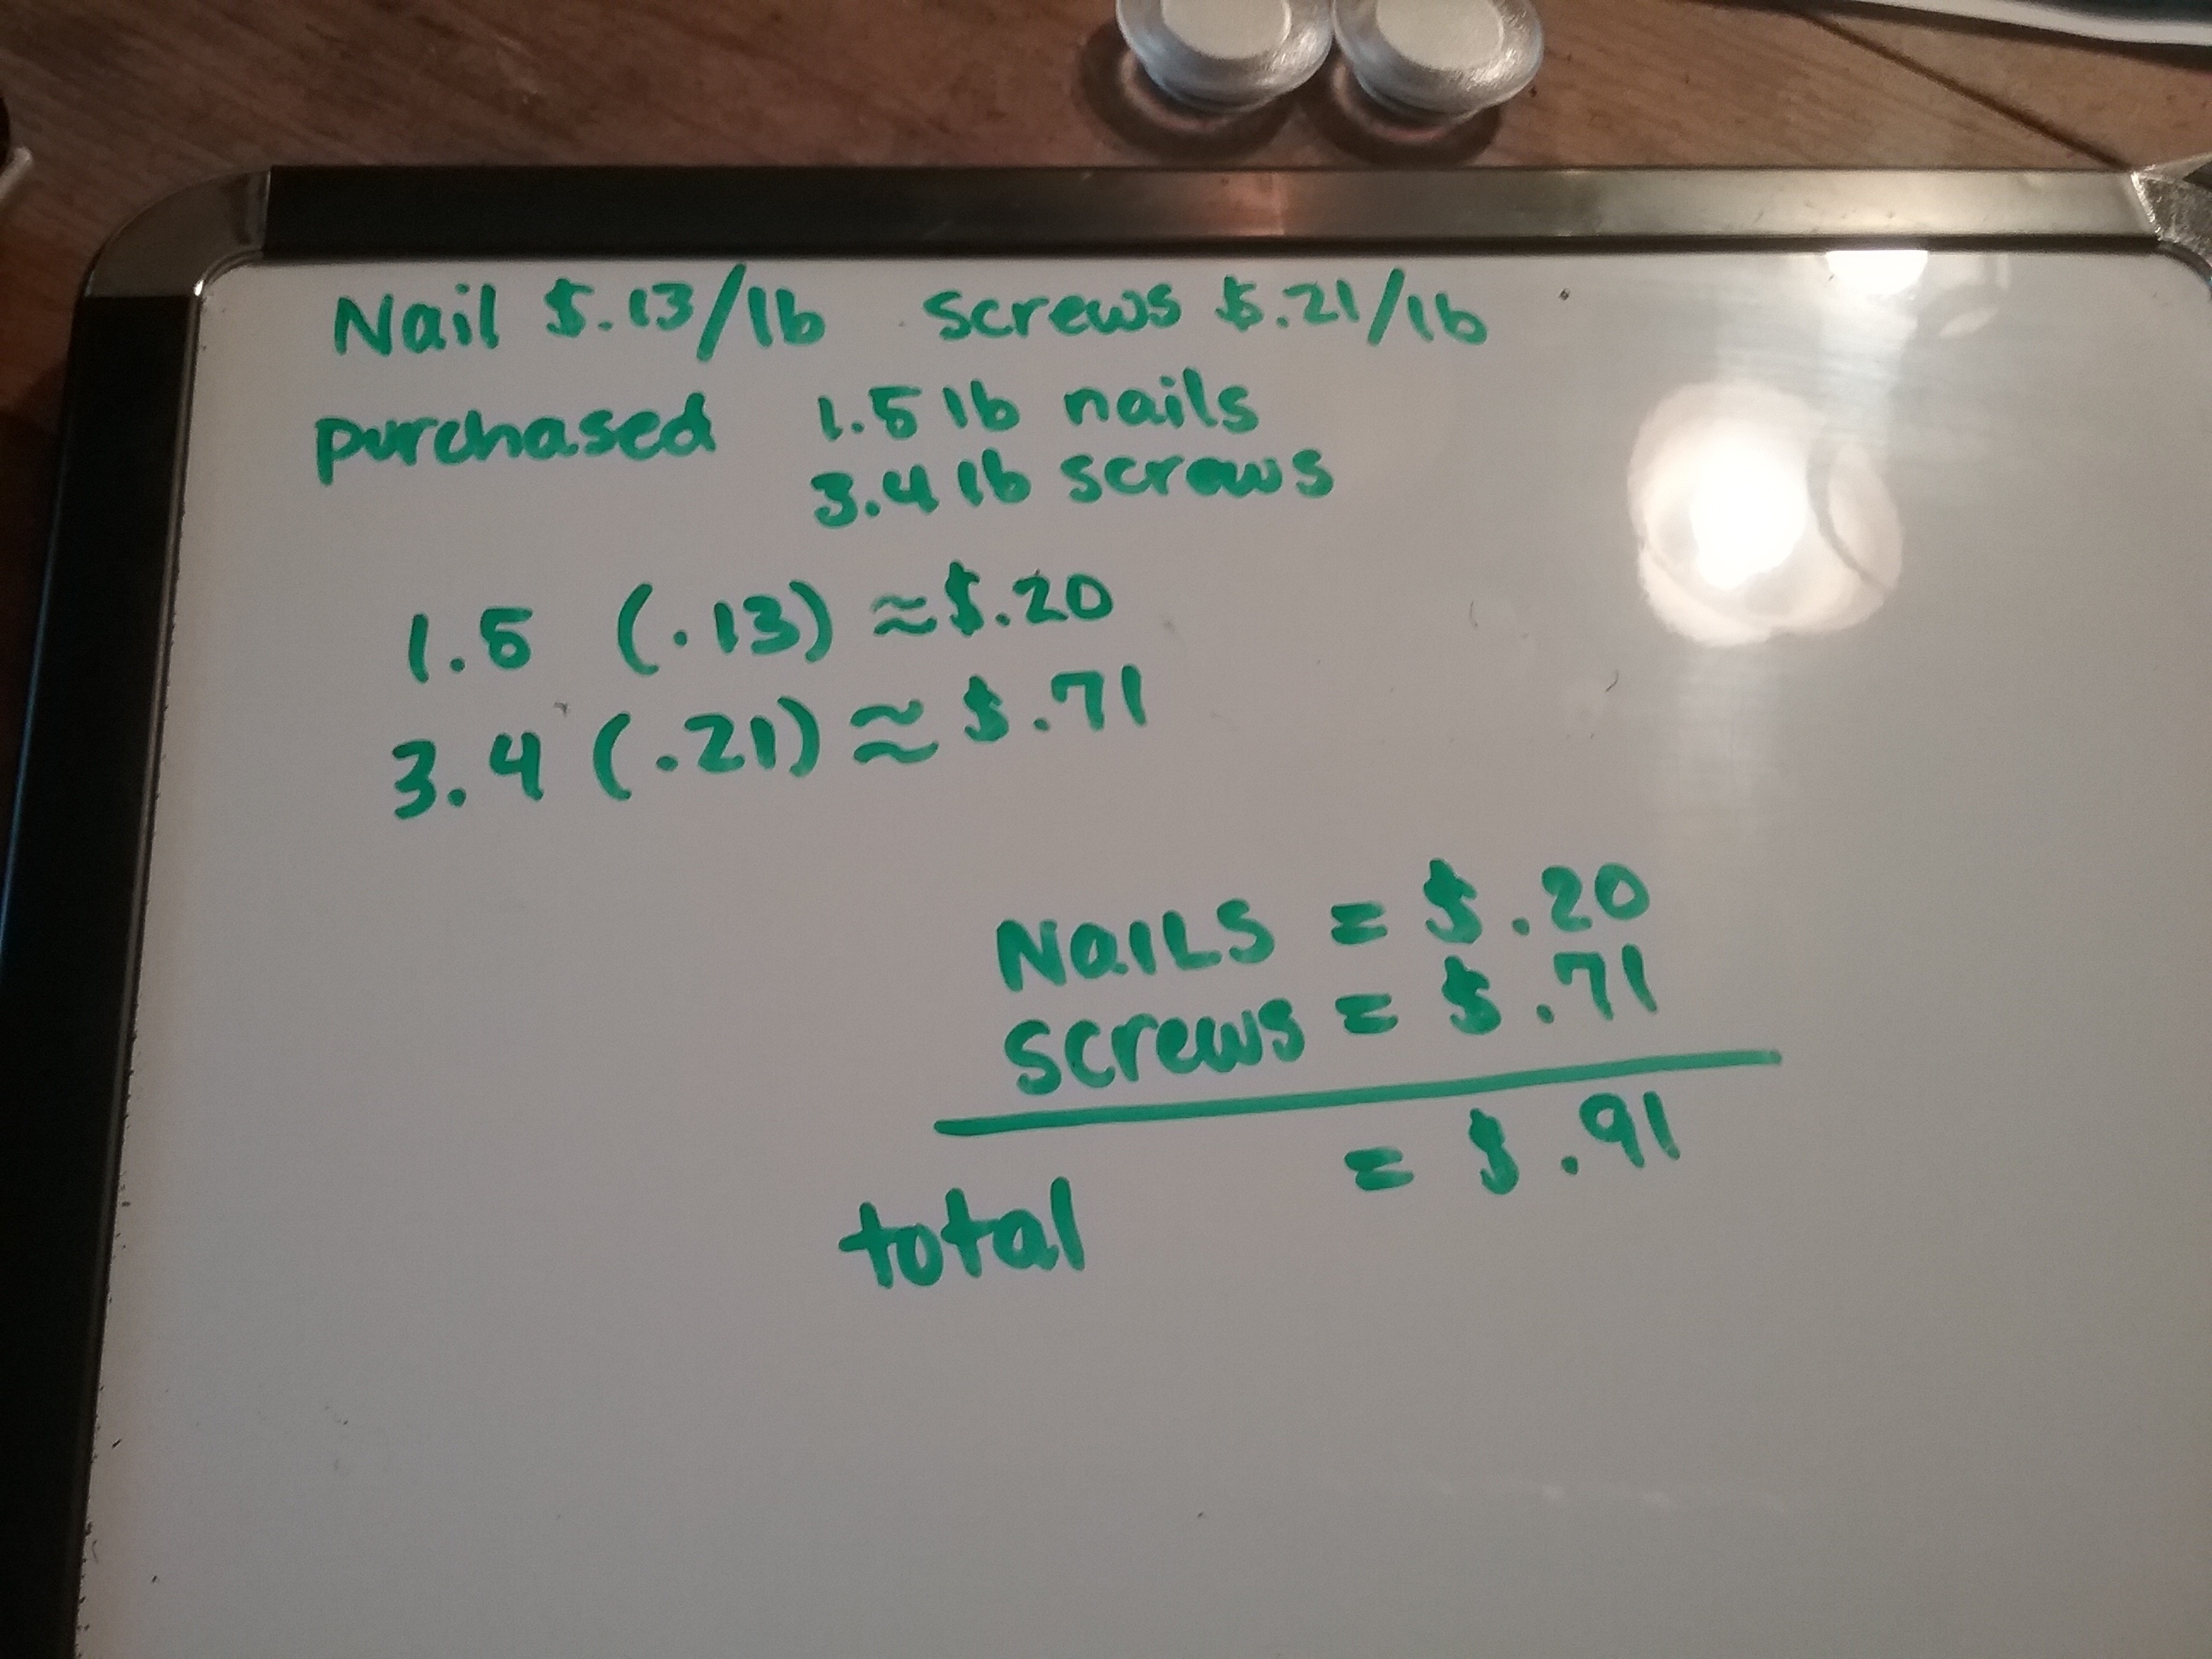 Nail $.13/lb screws $.21/lb
purchased 1.5 lb nails
3.4 lb screws
1.5 (.13) ≈ $.20
3.4 (.21) ≈ $.71
NaILS = $.20
screws = $.71
total = $.91